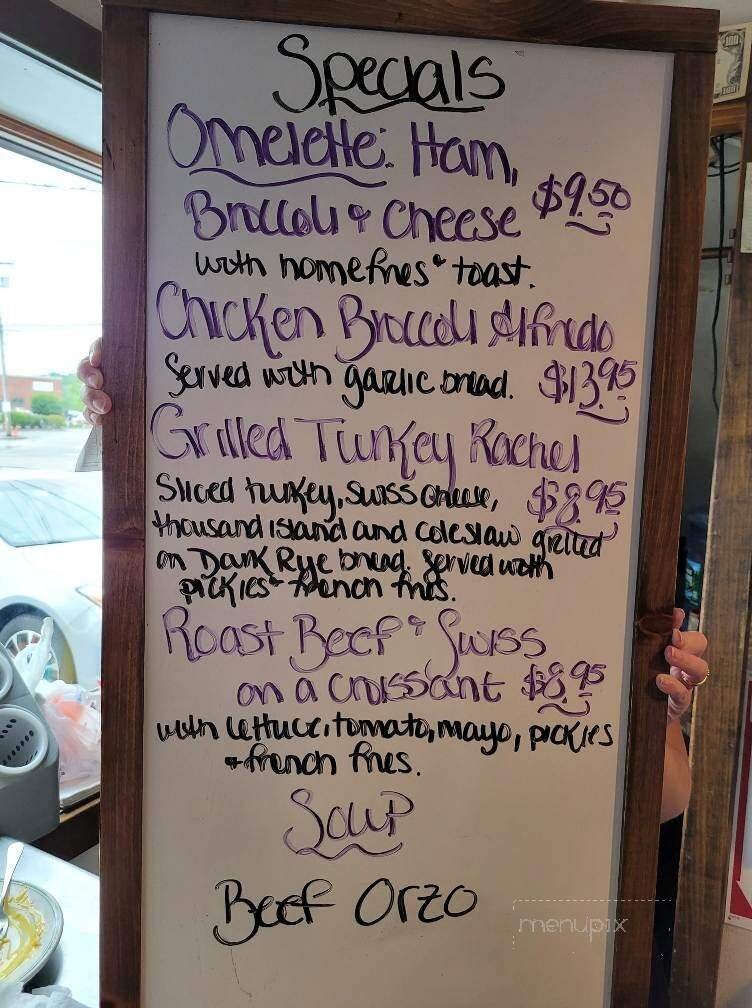 Specials
Omelette: Ham,
Broccoli & Cheese $9.50
with homefries & toast.
Chicken Broccoli Alfredo
Served with garlic bread. $13.95
Grilled Turkey Rachel
Sliced turkey, Swiss cheese, $8.95
thousand island and coleslaw grilled
on Dark Rye bread. Served with
pickles & french fries.
Roast Beef & Swiss
on a croissant $8.95
with lettuce, tomato, mayo, pickles
& french fries.
Soup
Beef Orzo
menupix
100
100